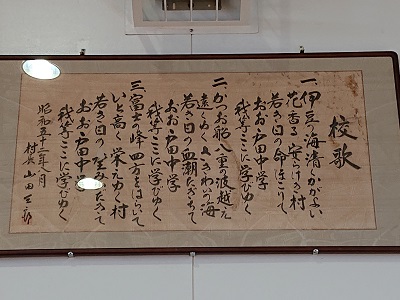 校歌
一、伊豆の海清くかがよい
花香る安らけき村
若き日の命ほこりて
おお戸田中学
我等ここに学びゆく
二、かつお船八重の波越え
遠くゆくさきわいの海
若き日の血潮たぎちて
おお戸田中学
我等ここに学びゆく
三、富士の峰四方をはらいて
いと高く栄えゆく村
若き日の望みたかて
おお戸田中学
我等ここに学びゆく
昭和五十二年八月
村長山田三郎